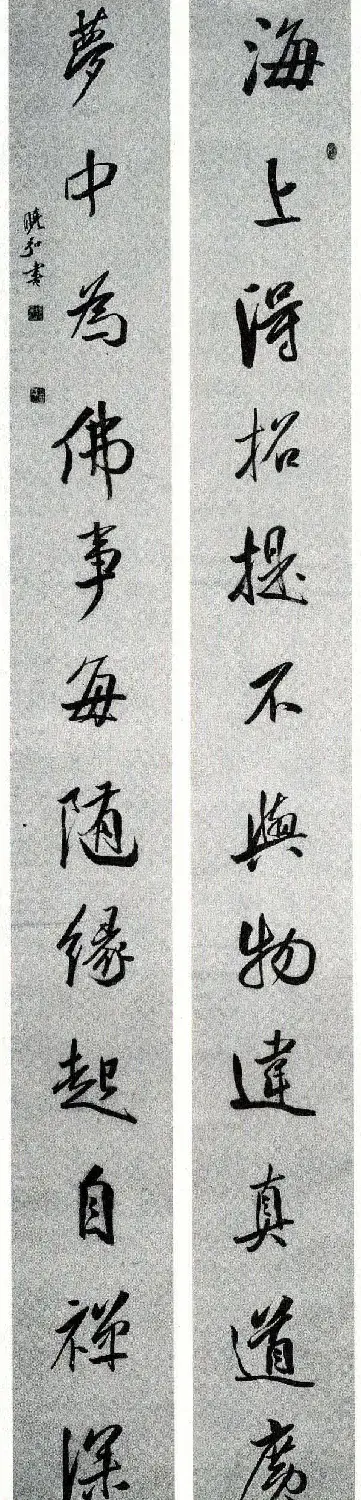 海上得招提不與物違真道廣
夢中為佛事每隨緣起自禪深
曉和書